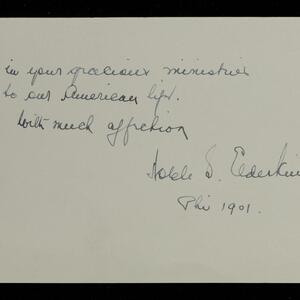 in your gracious ministries
to our American life.
With much affection
Noble S. Elderkin
Phi 1901.